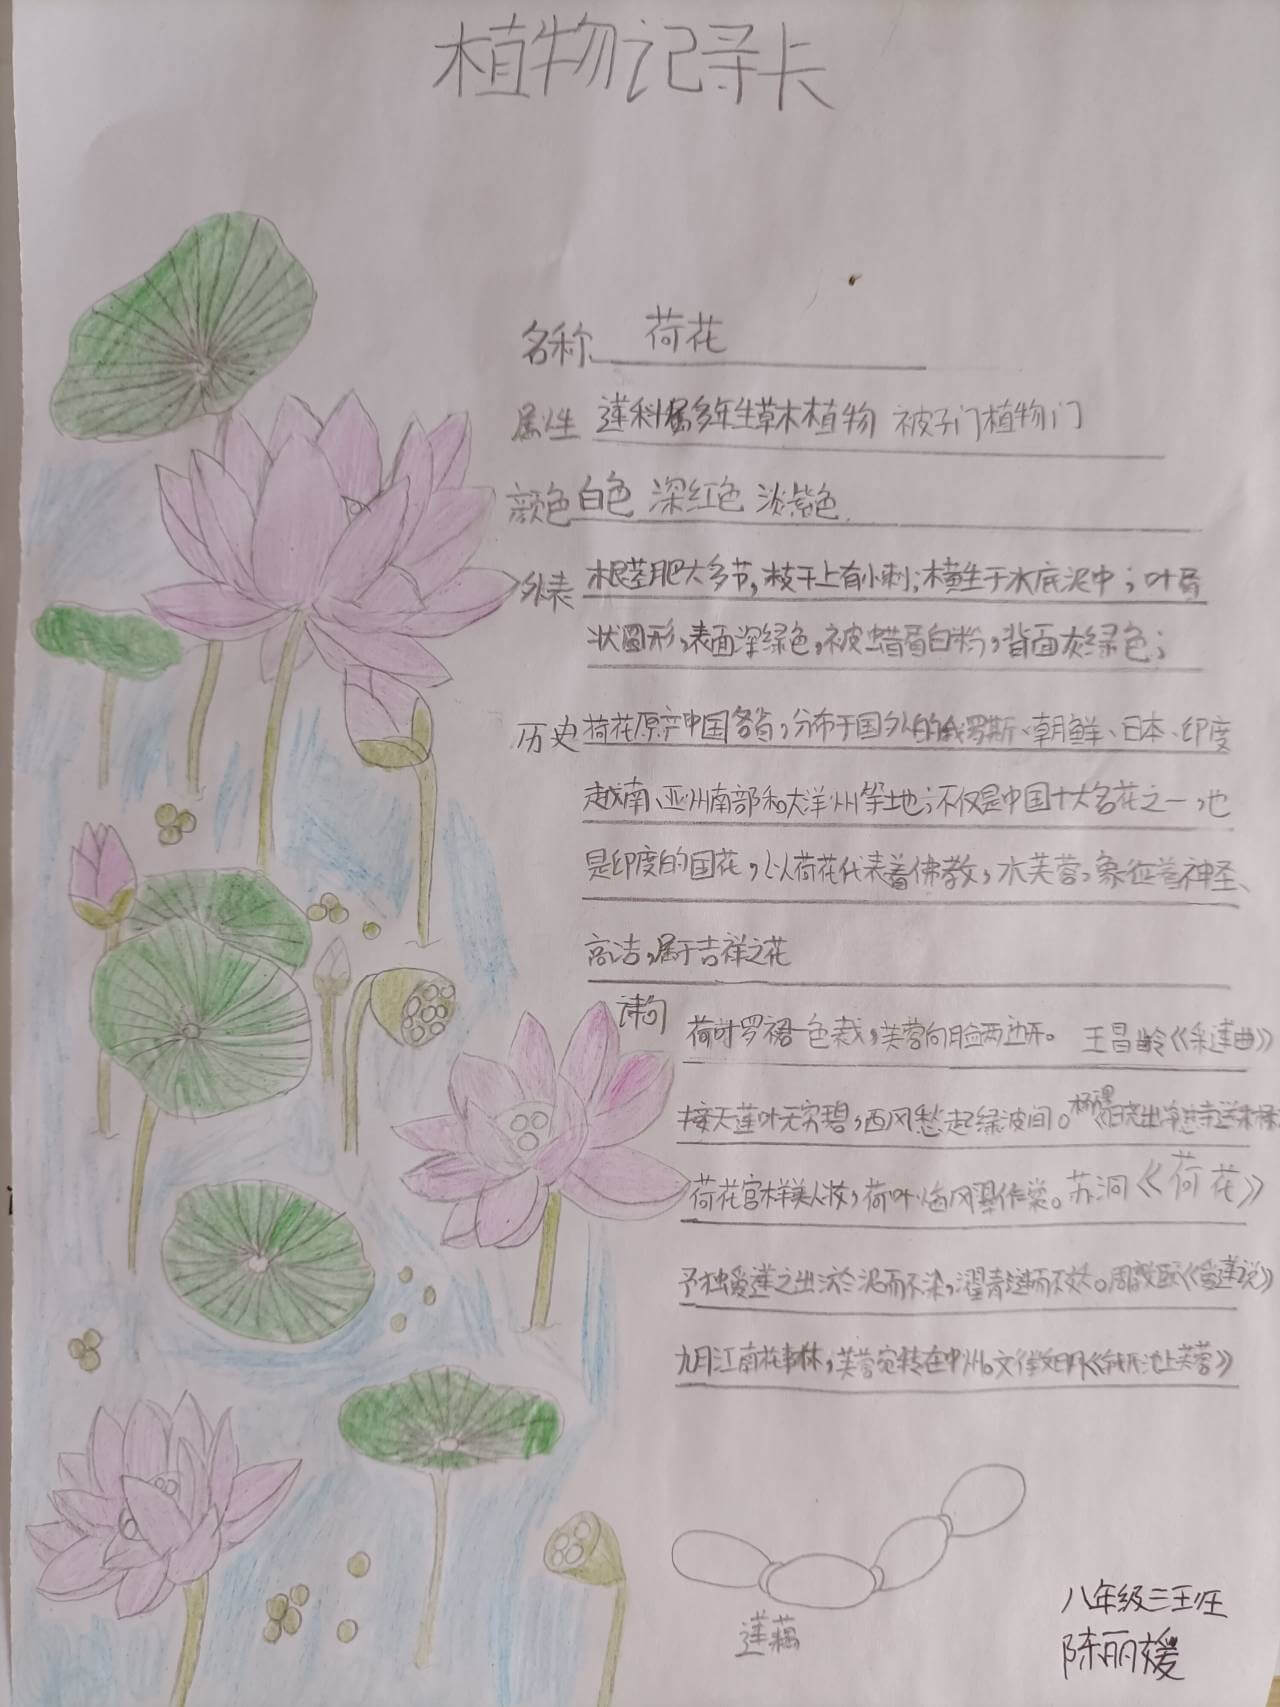 植物记录卡
名称 荷花
属性 莲科属多年生草本植物 被子门植物门
颜色 白色 深红色 淡紫色
外表 根茎肥大多节，枝干上有小刺；横生于水底泥中；叶盾
状圆形，表面深绿色，被蜡质白粉，背面灰绿色；
历史 荷花原产中国各省，分布于国外的俄罗斯、朝鲜、日本、印度
越南、亚州南部和大洋州等地；不仅是中国十大名花之一，也
是印度的国花，以荷花代表着佛教，水芙蓉，象征着神圣、
高洁，属于吉祥之花
诗句 荷叶罗裙一色裁，芙蓉向脸两边开。 王昌龄《采莲曲》
接天莲叶无穷碧，西风愁起绿波间。杨万里《晓出净慈寺送林
荷花宫样美人妆，荷叶临风翠作裳。苏泂《荷花》
予独爱莲之出淤泥而不染，濯清涟而不妖。周敦颐《爱莲说》
九月江南花事休，芙蓉宛转在中州。文徵明《钱氏池上芙蓉》
莲藕
八年级三班
陈丽媛